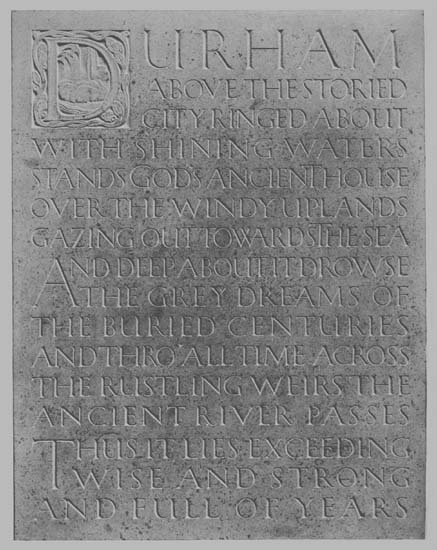 DURHAM
ABOVE THE STORIED
CITY RINGED ABOUT
WITH SHINING WATERS
STANDS GOD'S ANCIENT HOUSE
OVER THE WINDY UPLANDS
GAZING OUT TOWARDS THE SEA
AND DEEP ABOUT IT DROWSE
THE GREY DREAMS OF
THE BURIED CENTURIES
AND THRO' ALL TIME ACROSS
THE RUSTLING WEIRS THE
ANCIENT RIVER PASSES
THUS IT LIES EXCEEDING
WISE AND STRONG
AND FULL OF YEARS